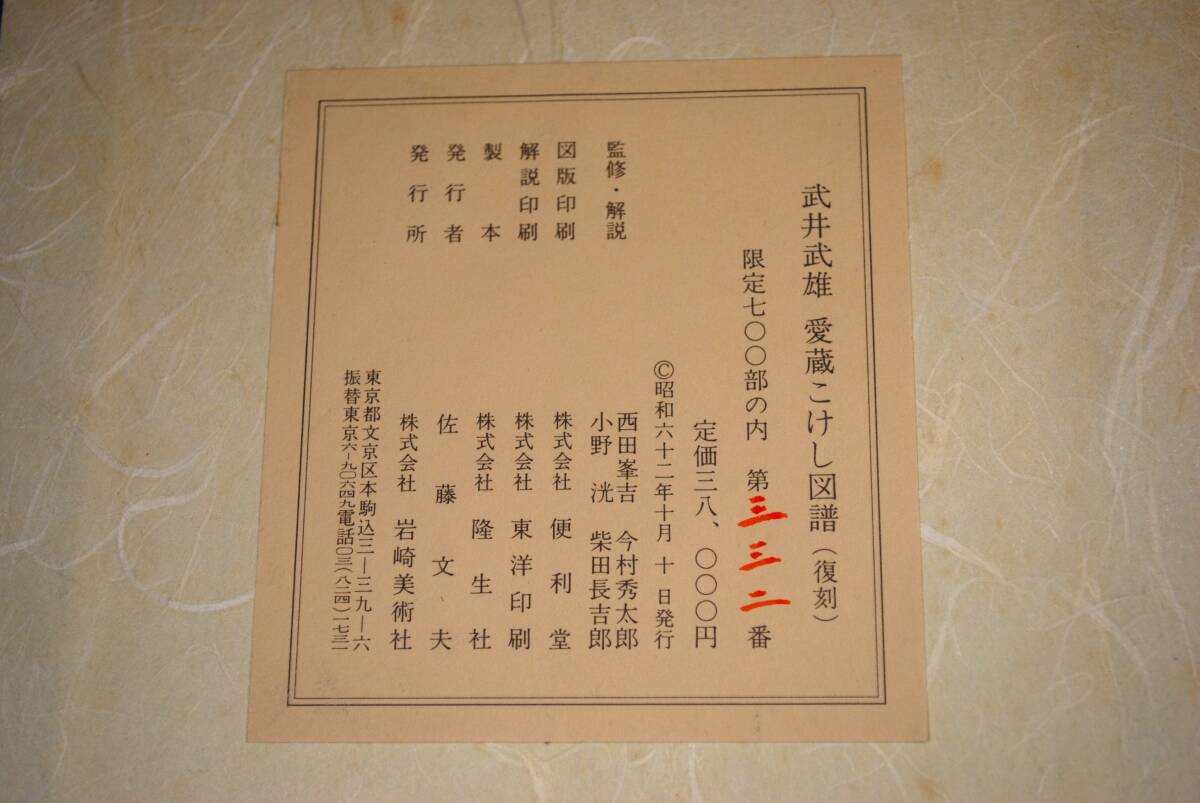 武井武雄 愛蔵こけし図譜(復刻)
限定七〇〇部の内 第三三二番
定価三八、〇〇〇円
©昭和六十二年十月 十 日発行
監修・解説 西田峯吉 今村秀太郎
小野 洸 柴田長吉郎
図版印刷 株式会社 便利堂
解説印刷 株式会社 東洋印刷
製本 株式会社 隆生社
発行者 佐藤文夫
発行所 株式会社 岩崎美術社
東京都文京区本駒込三―三九―六
振替東京六―九〇六四九電話〇三(八二四)一七三一